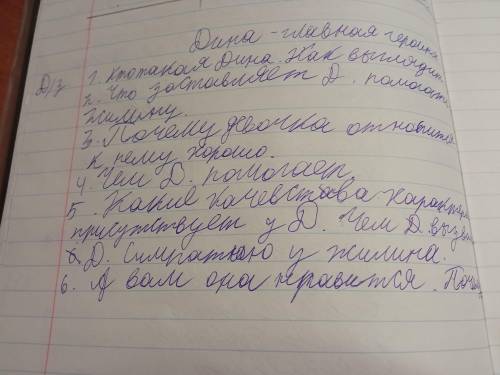 Дина - главная героиня
Д/з 1. Кто такая Дина. Как выглядит
2. Что заставляет Д. помогать
Жилину.
3. Почему девочка относится
к нему хорошо.
4. Чем Д. помогает.
5. Какие качевства характера
присутствует у Д. Чем Д. вызв
Д. симпатию у Жилина.
6. А вам она нравится. Почему